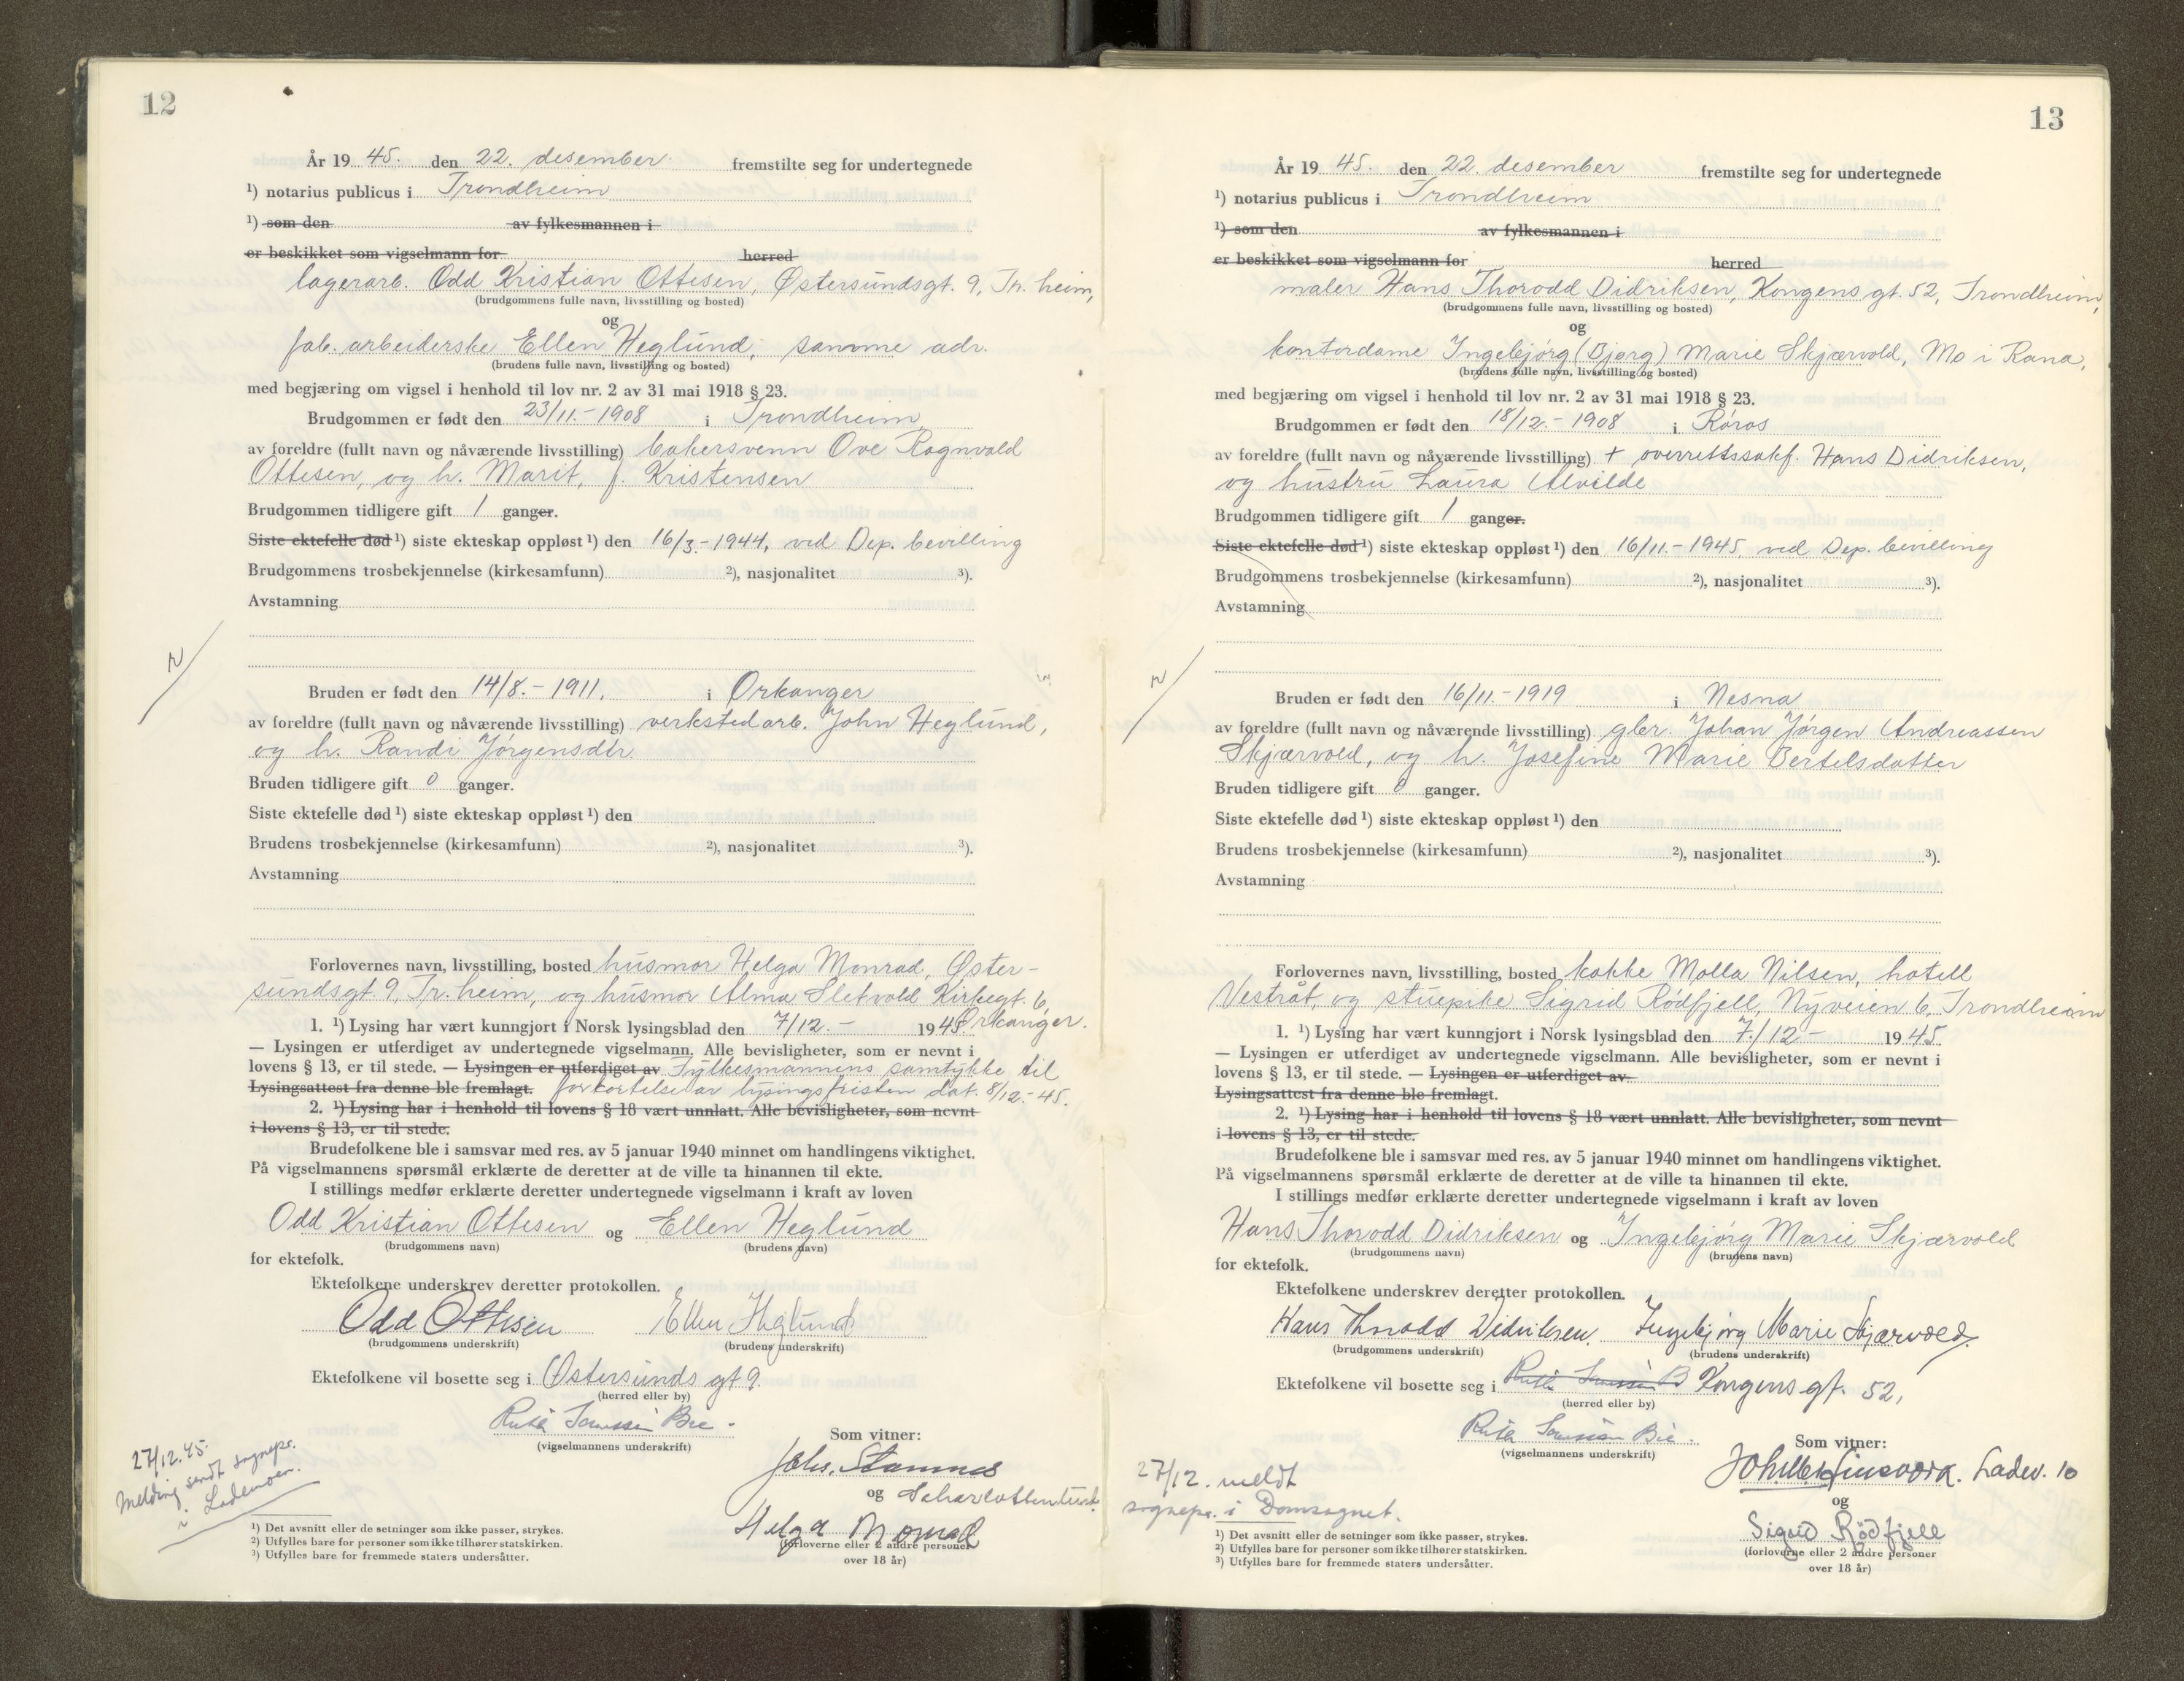 12
År 19 45. den 22. desember fremstilte seg for undertegnede
¹) notarius publicus i Trondheim
¹) som den av fylkesmannen i
er beskikket som vigselmann for herred
lagerarb. Odd Kristian Ottesen, Østersundsgt. 9, Tr.heim,
(brudgommens fulle navn, livsstilling og bosted)
og
fab. arbeiderske Ellen Heglund, samme adr.
(brudens fulle navn, livsstilling og bosted)
med begjæring om vigsel i henhold til lov nr. 2 av 31 mai 1918 § 23.
Brudgommen er født den 23/11.-1908 i Trondheim
av foreldre (fullt navn og nåværende livsstilling) bakersvenn Ove Ragnvald
Ottesen, og h. Marit, f. Kristensen
Brudgommen tidligere gift 1 ganger.
Siste ektefelle død ¹) siste ekteskap oppløst ¹) den 16/3.-1944, ved Dep. bevilling
Brudgommens trosbekjennelse (kirkesamfunn) ²), nasjonalitet ³).
Avstamning
N
Bruden er født den 14/8.-1911. i Orkanger
av foreldre (fullt navn og nåværende livsstilling) verkstedarb. John Heglund,
og h. Randi Jørgensdtr.
Bruden tidligere gift 0 ganger.
Siste ektefelle død ¹) siste ekteskap oppløst ¹) den
Brudens trosbekjennelse (kirkesamfunn) ²), nasjonalitet ³).
Avstamning
Forlovernes navn, livsstilling, bosted husmor Helga Monrad, Øster-
sundsgt. 9, Tr.heim, og husmor Alma Sletvold Kirkegt. 6,
Orkanger.
1. ¹) Lysing har vært kunngjort i Norsk lysingsblad den 7/12.- 1945.
— Lysingen er utferdiget av undertegnede vigselmann. Alle bevisligheter, som er nevnt i
lovens § 13, er til stede. — Lysingen er utferdiget av Fylkesmannens samtykke til
Lysingsattest fra denne ble fremlagt. forkortelse av lysingsfristen dat. 8/12.-45.
2. ¹) Lysing har i henhold til lovens § 18 vært unnlatt. Alle bevisligheter, som nevnt
i lovens § 13, er til stede.
Brudefolkene ble i samsvar med res. av 5 januar 1940 minnet om handlingens viktighet.
På vigselmannens spørsmål erklærte de deretter at de ville ta hinannen til ekte.
I stillings medfør erklærte deretter undertegnede vigselmann i kraft av loven
Odd Kristian Ottesen og Ellen Heglund
(brudgommens navn) (brudens navn)
for ektefolk.
Ektefolkene underskrev deretter protokollen.
Odd Ottesen Ellen Heglund
(brudgommens underskrift) (brudens underskrift)
Ektefolkene vil bosette seg i Østersunds gt 9.
(herred eller by)
(vigselmannens underskrift)
Som vitner:
Johs. Stamnes
og
Helga Monrad
(forloverne eller 2 andre personer
over 18 år)
27/12.45.
Melding sendt sognepr.
i Lademoen.
¹) Det avsnitt eller de setninger som ikke passer, strykes.
²) Utfylles bare for personer som ikke tilhører statskirken.
³) Utfylles bare for fremmede staters undersåtter.
13
År 19 45. den 22. desember fremstilte seg for undertegnede
¹) notarius publicus i Trondheim
¹) som den av fylkesmannen i
er beskikket som vigselmann for herred
maler Hans Thorodd Didriksen, Kongens gt. 52, Trondheim,
(brudgommens fulle navn, livsstilling og bosted)
og
kontordame Ingebjørg (Bjørg) Marie Skjærvold, Mo i Rana,
(brudens fulle navn, livsstilling og bosted)
med begjæring om vigsel i henhold til lov nr. 2 av 31 mai 1918 § 23.
Brudgommen er født den 18/12.-1908 i Røros
av foreldre (fullt navn og nåværende livsstilling) + overrettssakf. Hans Didriksen,
og hustru Laura Alvilde
Brudgommen tidligere gift 1 ganger.
Siste ektefelle død ¹) siste ekteskap oppløst ¹) den 16/11.-1945, ved Dep. bevilling
Brudgommens trosbekjennelse (kirkesamfunn) ²), nasjonalitet ³).
Avstamning
N
Bruden er født den 16/11.-1919 i Nesna
av foreldre (fullt navn og nåværende livsstilling) gbr. Johan Jørgen Andreassen
Skjærvold, og h. Josefine Marie Bertelsdatter
Bruden tidligere gift 0 ganger.
Siste ektefelle død ¹) siste ekteskap oppløst ¹) den
Brudens trosbekjennelse (kirkesamfunn) ²), nasjonalitet ³).
Avstamning
Forlovernes navn, livsstilling, bosted kokke Molla Nilsen, hotell
Vestråt, og stuepike Sigrid Rødfjell, Nyveien 6, Trondheim
1. ¹) Lysing har vært kunngjort i Norsk lysingsblad den 7/12- 1945.
— Lysingen er utferdiget av undertegnede vigselmann. Alle bevisligheter, som er nevnt i
lovens § 13, er til stede. — Lysingen er utferdiget av
Lysingsattest fra denne ble fremlagt.
2. ¹) Lysing har i henhold til lovens § 18 vært unnlatt. Alle bevisligheter, som nevnt
i lovens § 13, er til stede.
Brudefolkene ble i samsvar med res. av 5 januar 1940 minnet om handlingens viktighet.
På vigselmannens spørsmål erklærte de deretter at de ville ta hinannen til ekte.
I stillings medfør erklærte deretter undertegnede vigselmann i kraft av loven
Hans Thorodd Didriksen og Ingebjørg Marie Skjærvold
(brudgommens navn) (brudens navn)
for ektefolk.
Ektefolkene underskrev deretter protokollen.
Hans Thorodd Didriksen. Ingebjørg Marie Skjærvold.
(brudgommens underskrift) (brudens underskrift)
Ektefolkene vil bosette seg i Kongens gt. 52,
(herred eller by)
(vigselmannens underskrift)
Som vitner:
Ladev. 10
og
Sigrid Rødfjell
(forloverne eller 2 andre personer
over 18 år)
27/12. meldt
sognepr. i Domsognet.
¹) Det avsnitt eller de setninger som ikke passer, strykes.
²) Utfylles bare for personer som ikke tilhører statskirken.
³) Utfylles bare for fremmede staters undersåtter.